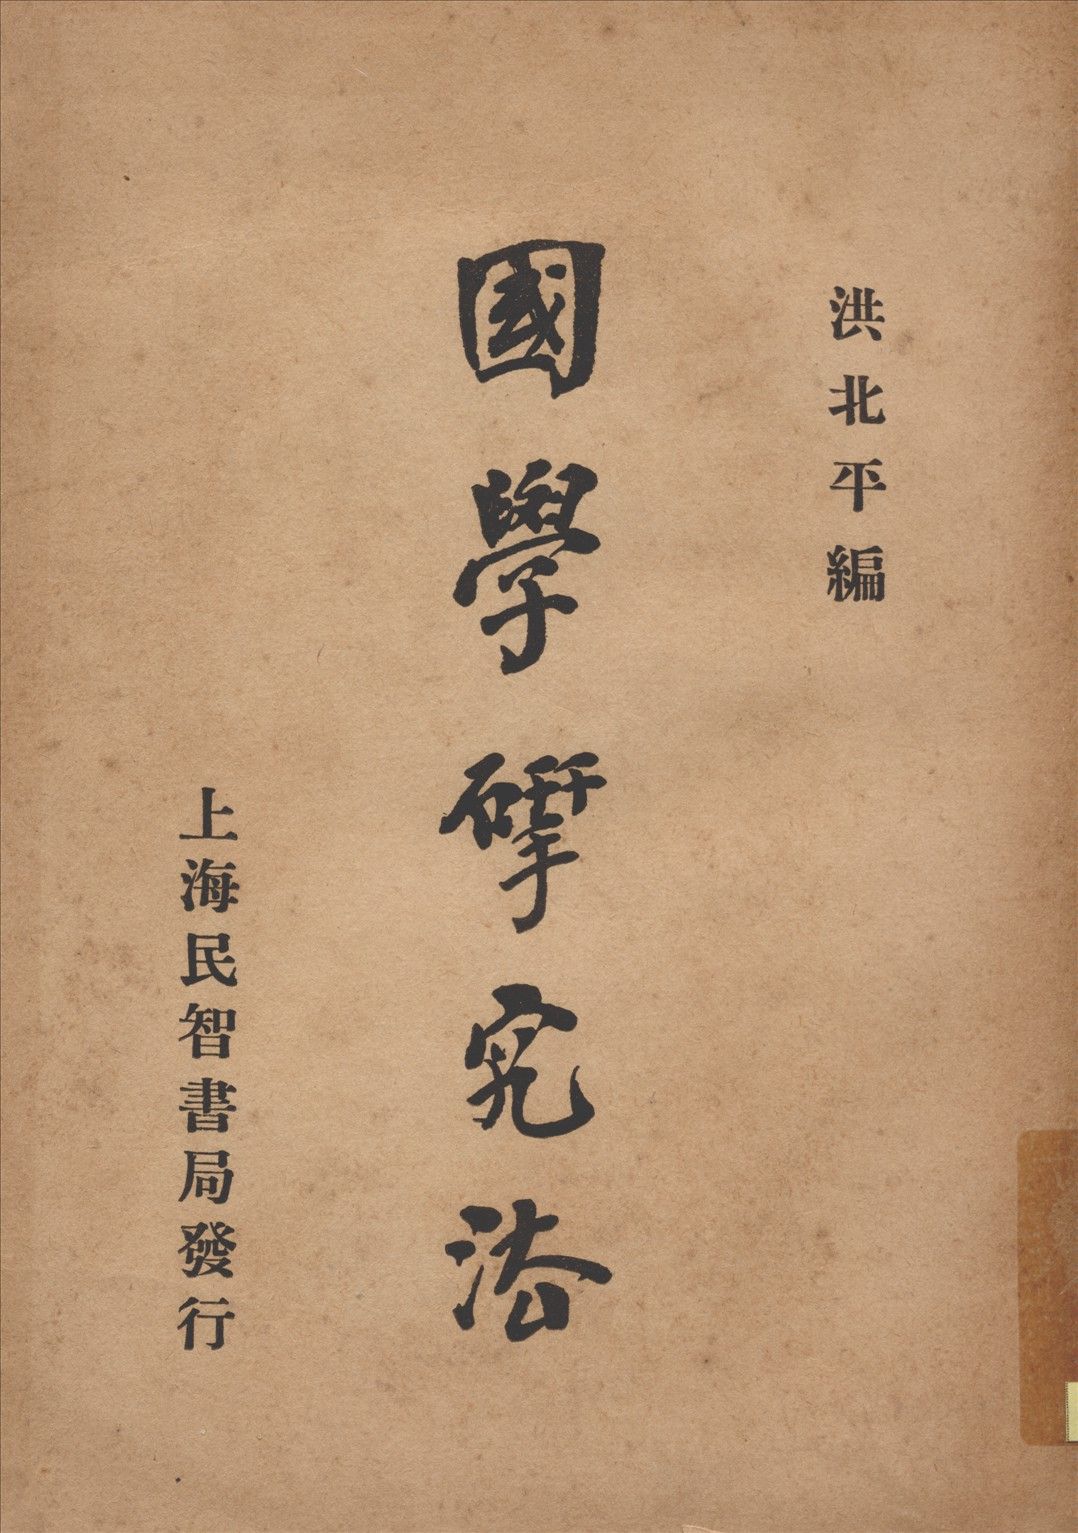 洪北平編
國學硏究法
上海民智書局發行